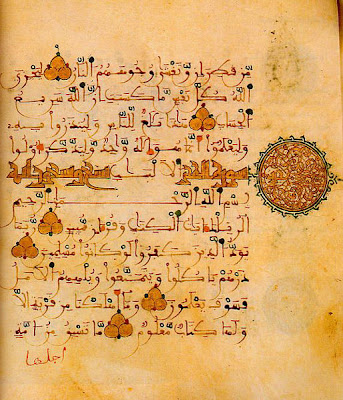 من قطران وتغشى وجوههم النار ليجزي
الله كل نفس ما كسبت إن الله سريع
الحساب هذا بلغ للناس ولينذروا به
وليعلموا أنما هو إله واحد وليذكر أولوا
الألبب سورة الحجر تسع وتسعون آية
بسم الله الرحمن الرحيم
الر تلك ءايت الكتب وقرءان مبين ربما
يود الذين كفروا لو كانوا مسلمين
ذرهم ياكلوا ويتمتعوا ويلههم الأمل
فسوف يعلمون وما أهلكنا من قرية إلا
ولها كتاب معلوم ما تسبق من أمة
أجلها